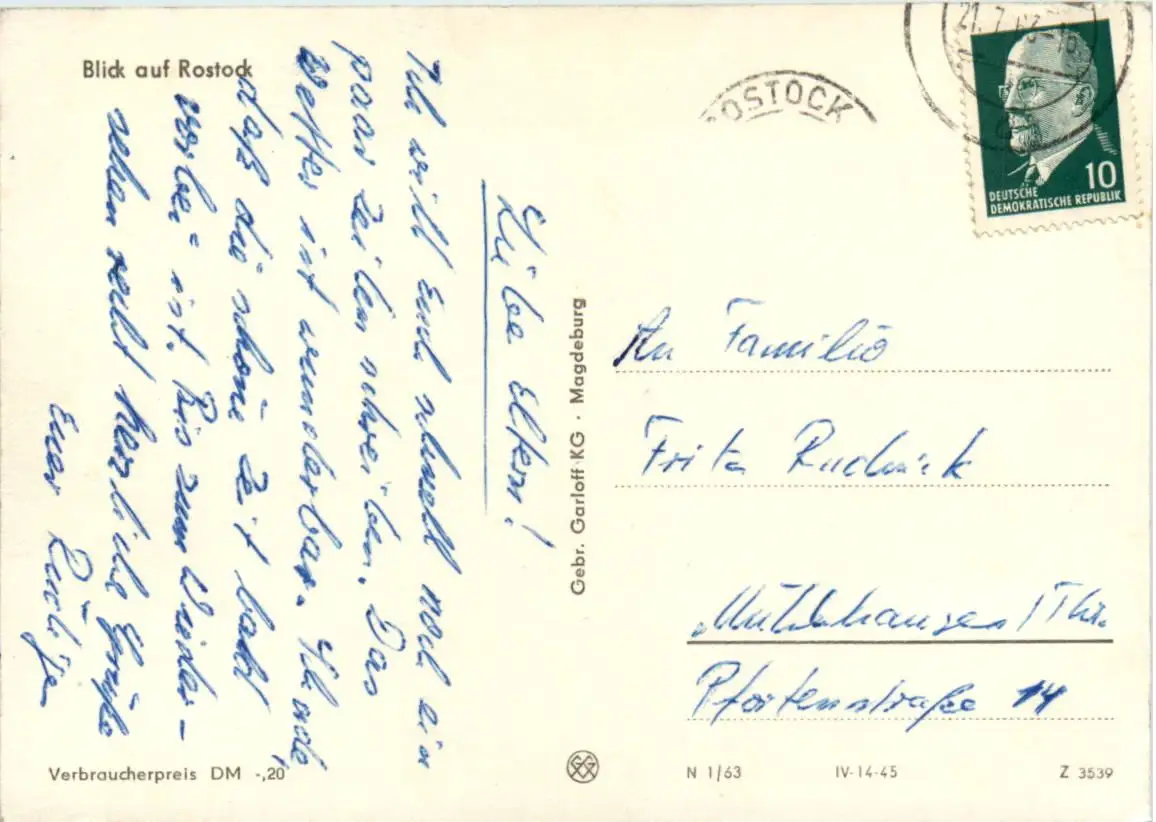 Blick auf Rostock
Liebe Eltern!
Ich will Euch schnell noch ein
paar Zeilen schreiben. Das
Wetter ist wunderbar. Schade
daß die schöne Zeit bald
vorbei ist. Bis zum Wieder-
sehen recht herzliche Grüße
Euer
Gebr. Garloff KG · Magdeburg
ROSTOCK
21.7.63-16
10
DEUTSCHE
DEMOKRATISCHE REPUBLIK
An Familie
Fritz
Mühlhausen/Thür.
Pfortenstraße 14
Verbraucherpreis DM -,20
N 1/63 IV-14-45 Z 3539